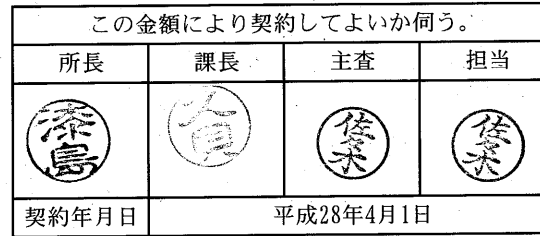 この金額により契約してよいか伺う。
所長 課長 主査 担当
漆島 人見 佐々木 佐々木
契約年月日 平成28年4月1日